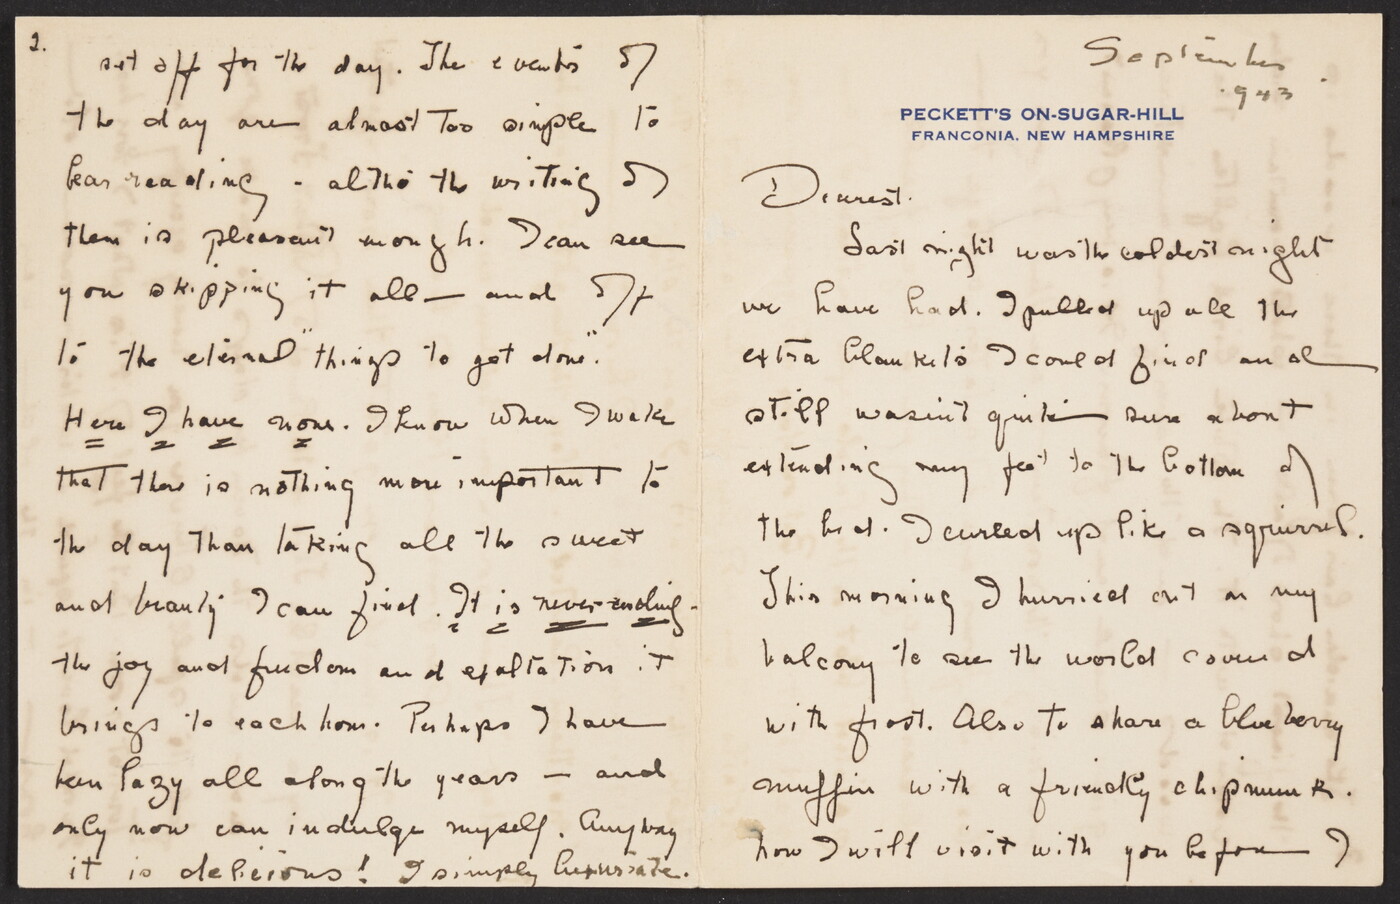 September
1943
PECKETT'S ON-SUGAR-HILL
FRANCONIA, NEW HAMPSHIRE
Dearest.
Last night was the coldest night
we have had. I pulled up all the
extra blankets I could find and
still wasn't quite sure about
extending my feet to the bottom of
the bed. I curled up like a squirrel.
This morning I hurried out on my
balcony to see the world covered
with frost. Also to share a blueberry
muffin with a friendly chipmunk.
Now I will visit with you before I
2.
set off for the day. The events of
the day are almost too simple to
bear reading - altho the writing of
them is pleasant enough. I can see
you skipping it all — and off
to the eternal "things to get done".
Here I have none. I know when I wake
that there is nothing more important to
the day than taking all the sweet
and beauty I can find. It is never-ending -
the joy and freedom and exaltation it
brings to each hour. Perhaps I have
been lazy all along the years — and
only now can indulge myself. Anyway
it is delicious! I simply luxuriate.